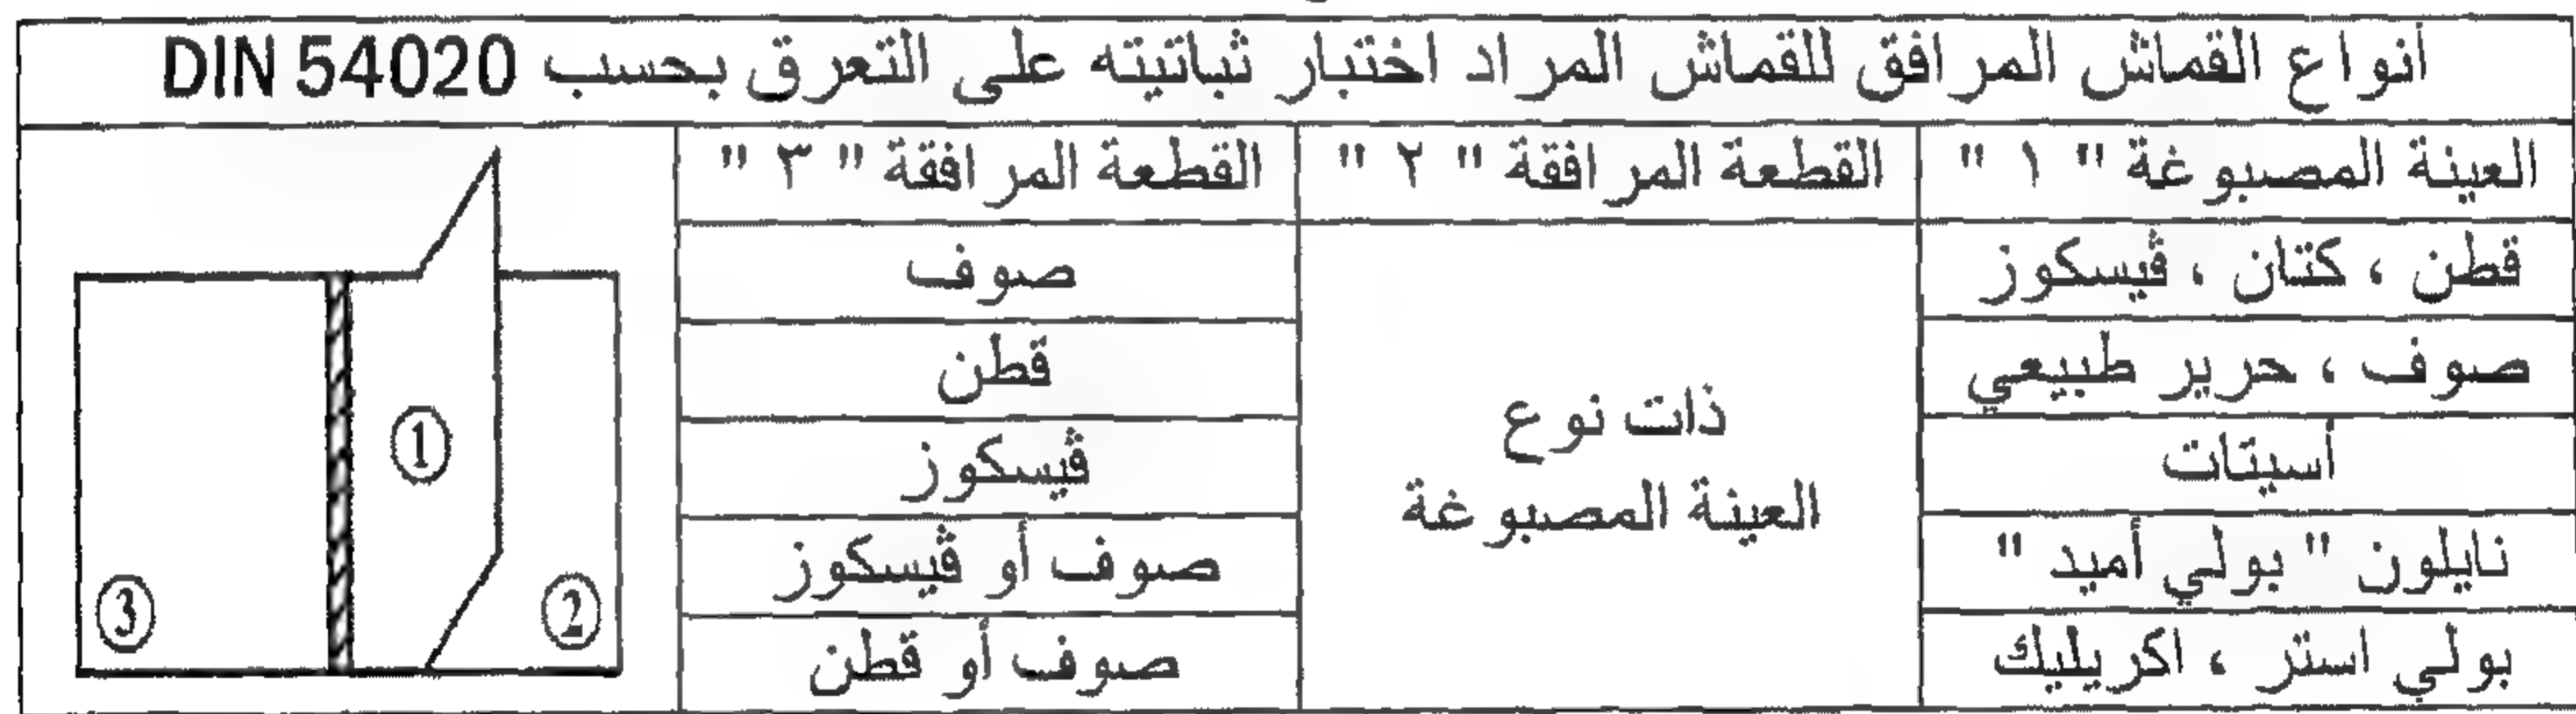 أنواع القماش المرافق للقماش المراد اختبار ثباتيته على التعرق بحسب DIN 54020
العينة المصبوغة " ١ "
القطعة المرافقة " ٢ "
القطعة المرافقة " ٣ "
قطن ، كتان ، ڤيسكوز
صوف
صوف ، حرير طبيعي
قطن
ذات نوع
العينة المصبوغة
أسيتات
ڤيسكوز
نايلون " بولي أميد "
صوف أو ڤيسكوز
بولي استر ، اكريليك
صوف أو قطن
①
②
③